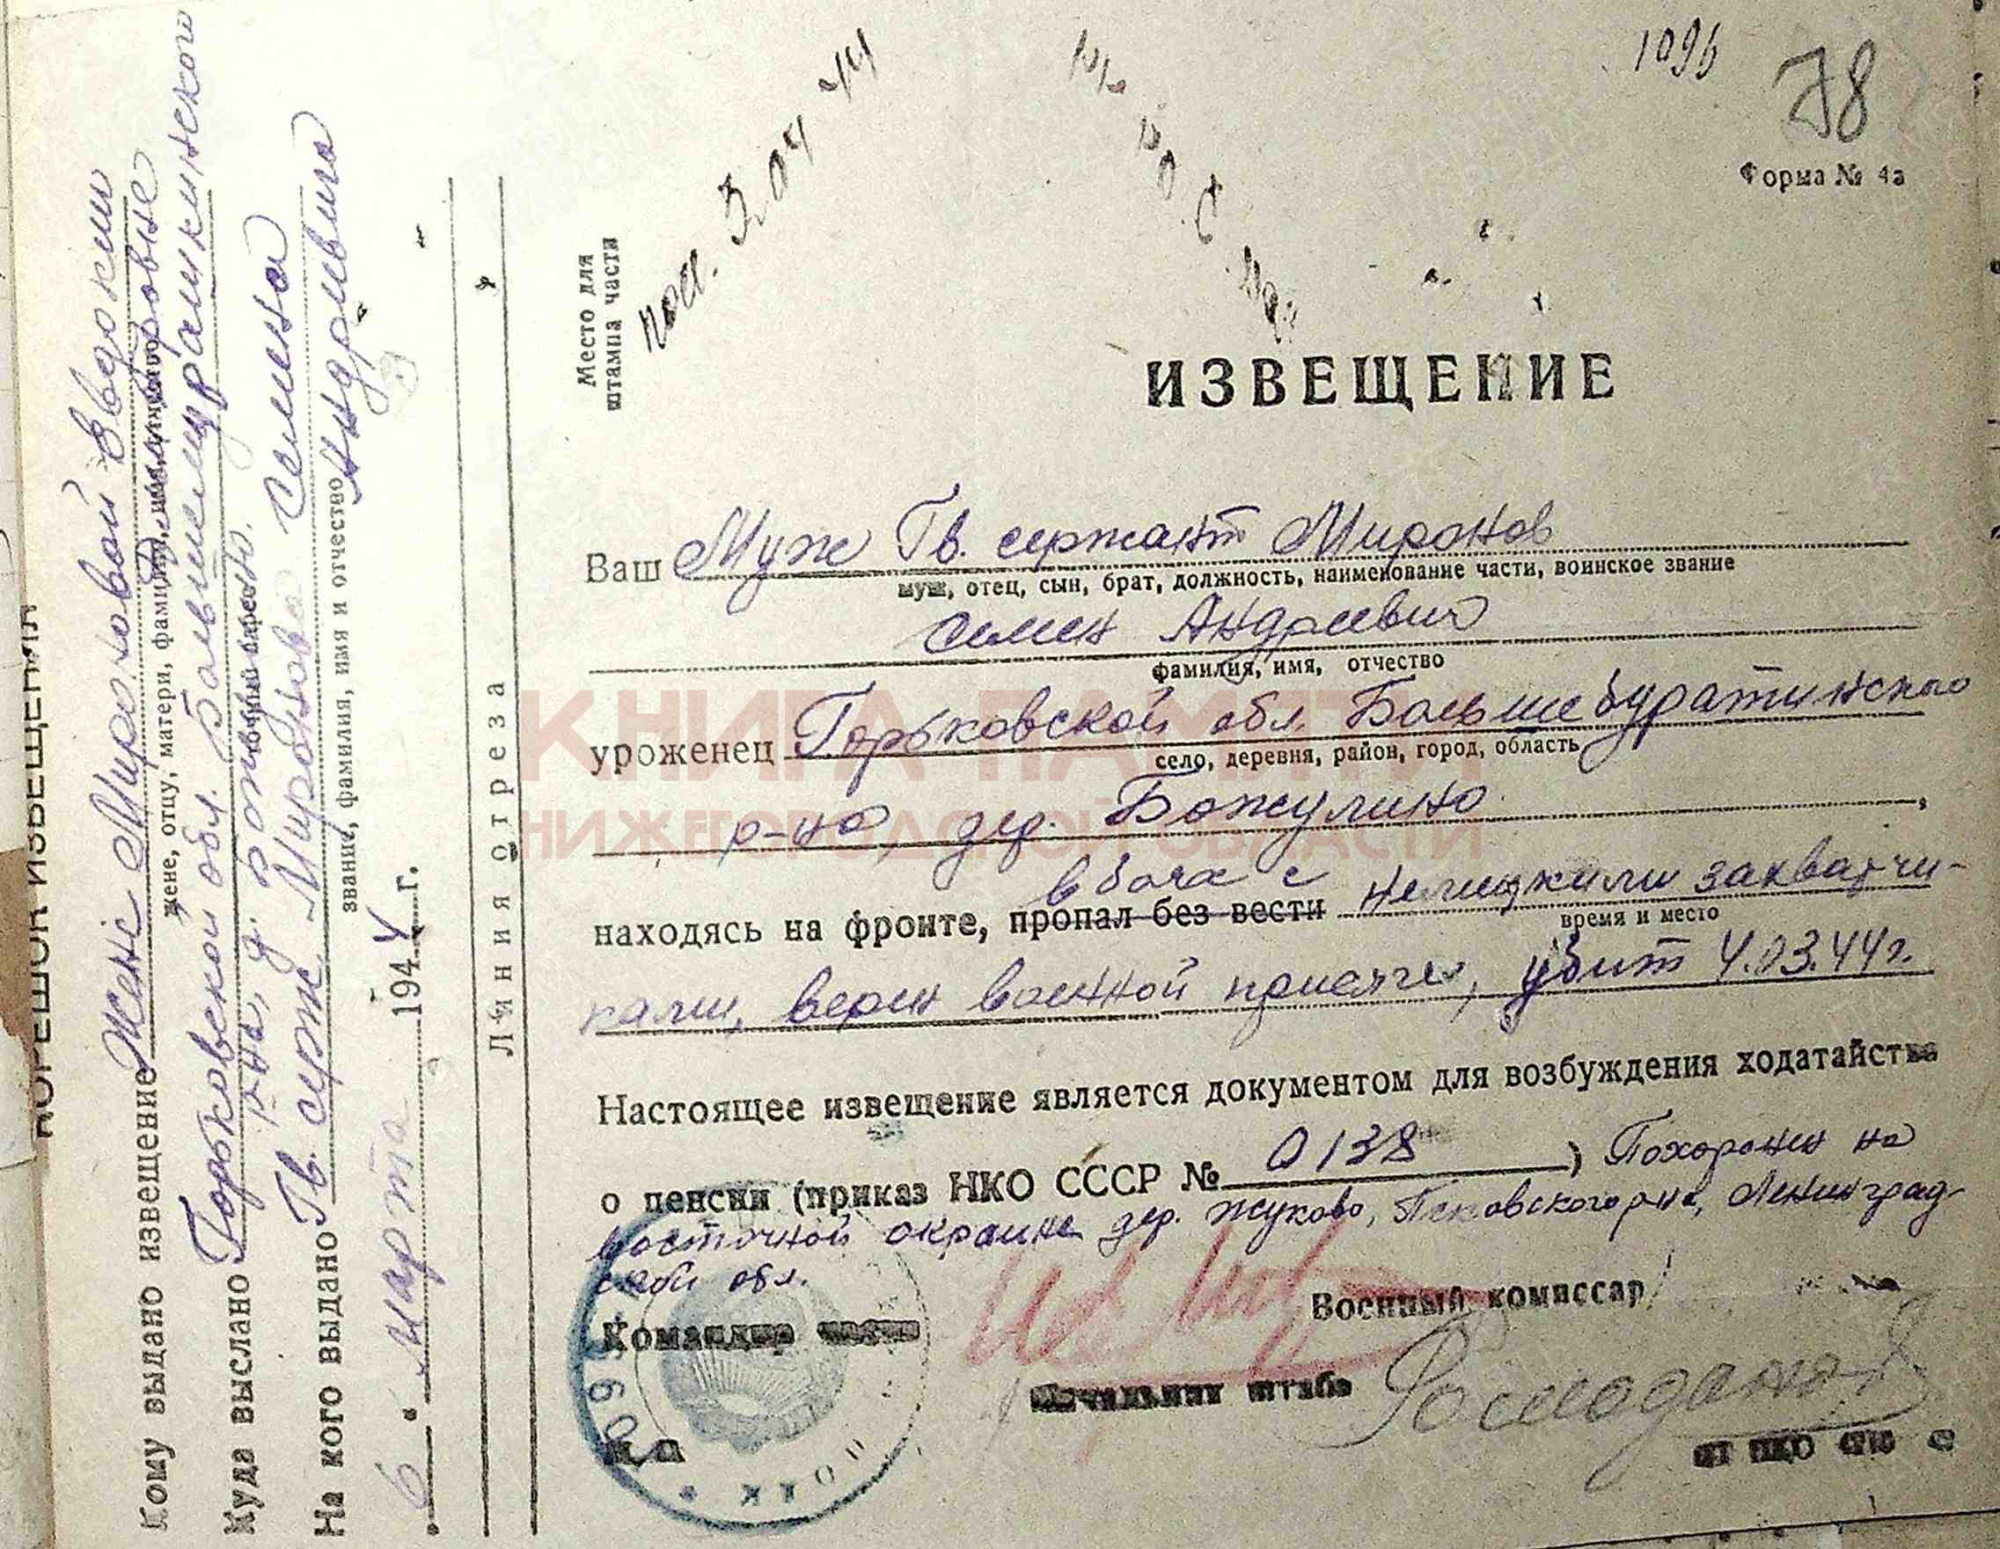 1096
78
Форма № 4а
Место для
штампа части
3.04.44
ИЗВЕЩЕНИЕ
Ваш Муж Гв. сержант Миронов
муж, отец, сын, брат, должность, наименование части, воинское звание
Семен Андреевич
фамилия, имя, отчество
уроженец Горьковской обл. Большебуратинского
село, деревня, район, город, область
р-на, дер. Божулино
находясь на фронте, пропал без вести в боях с немецкими захватчи-
время и место
ками, верен военной присяге, убит 4.03.44 г.
Настоящее извещение является документом для возбуждения ходатайства
о пенсии (приказ НКО СССР № 0138 ) Похоронен на
восточной окраине дер. Жуково, Псковского р-на, Ленинград-
ской обл.
Командир части
Военный комиссар
Начальник штаба
КНИГА ПАМЯТИ
НИЖЕГОРОДСКОЙ ОБЛАСТИ
КОРЕШОК ИЗВЕЩЕНИЯ
Кому выдано извещение Жене Мироновой Евдокии
жене, отцу, матери, фамилия, имя, отчество
Куда выслано Горьковской обл.
р-на, д.
На кого выдано Гв. серж. Миронова Семена
Андреевича
звание, фамилия, имя и отчество
6 марта 1944 г.
Линия отреза